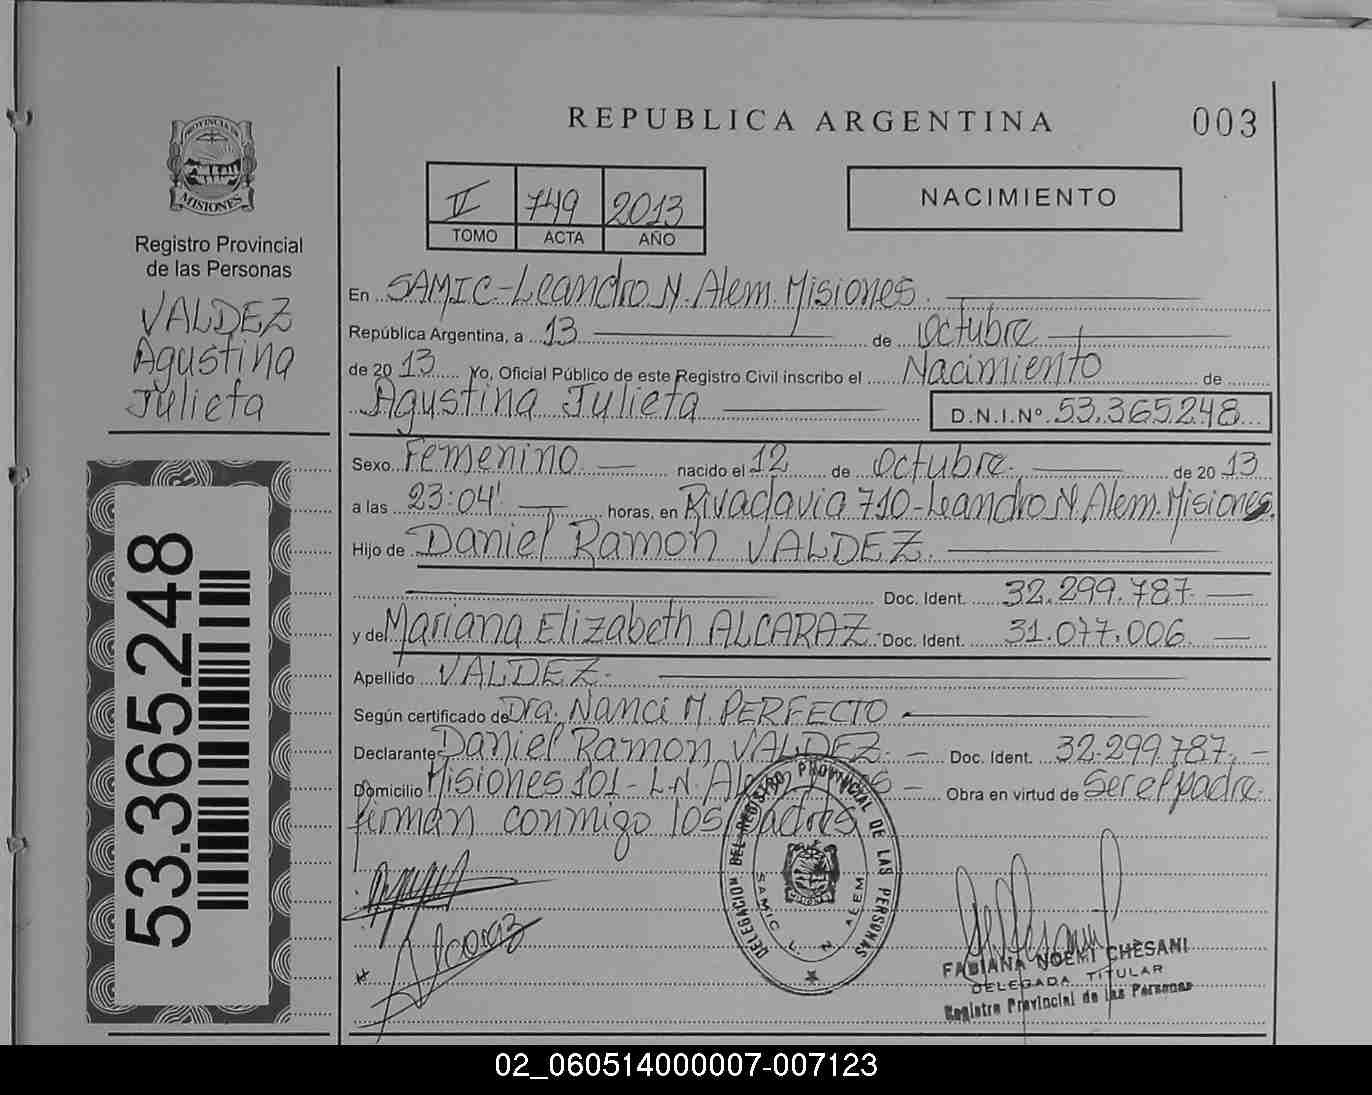 REPUBLICA ARGENTINA
003
PROVINCIA DE
MISIONES
Registro Provincial
de las Personas
VALDEZ
Agustina
Julieta
II 749 2013
TOMO ACTA AÑO
NACIMIENTO
En SAMIC-Leandro N. Alem. Misiones.
República Argentina, a 13 de Octubre
de 20 13 Yo, Oficial Público de este Registro Civil inscribo el Nacimiento de
Agustina Julieta D.N.I.Nº 53.365.248
Sexo Femenino nacido el 12 de Octubre. de 20 13
a las 23:04' horas, en Rivadavia 710-Leandro N. Alem. Misiones.
Hijo de Daniel Ramon VALDEZ.
Doc. Ident. 32.299.787
y de Mariana Elizabeth ALCARAZ Doc. Ident. 31.077.006
Apellido VALDEZ.
Según certificado de Dra. Nanci M. PERFECTO
Declarante Daniel Ramon VALDEZ. Doc. Ident. 32.299.787.
Domicilio Misiones 101- L.N. Obra en virtud de Ser el padre.
firman conmigo los padres
53.365.248
DELEGACION DEL REGISTRO PROVINCIAL DE LAS PERSONAS
SAMIC L. N. ALEM
Alcaraz
FABIANA NOEMI CHESANI
DELEGADA TITULAR
Registro Provincial de las Personas
02_060514000007-007123